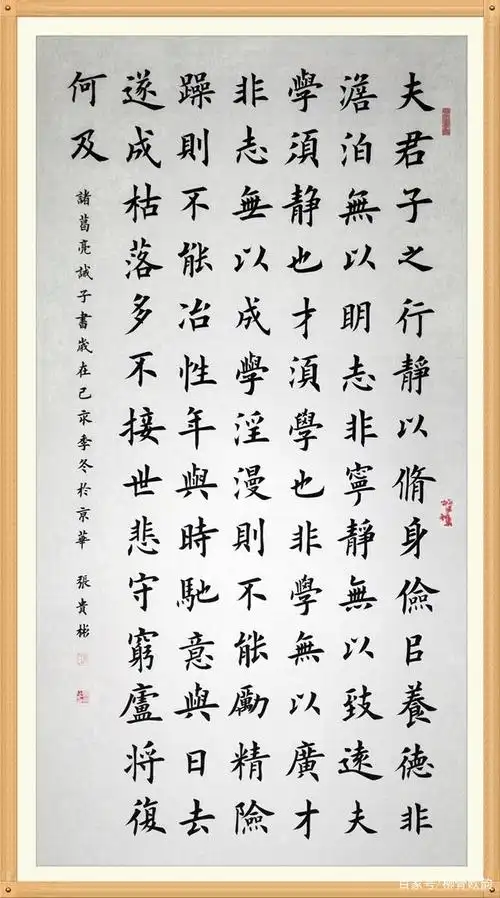 夫君子之行靜以脩身儉㠯養德非
澹泊無以明志非寧靜無以致遠夫
學須靜也才須學也非學無以廣才
非志無以成學淫漫則不能勵精險
躁則不能冶性年與時馳意與日去
遂成枯落多不接世悲守窮廬將復
何及
諸葛亮誡子書歲在己亥季冬於京華 張貴彬
百家号/柳骨欧韵